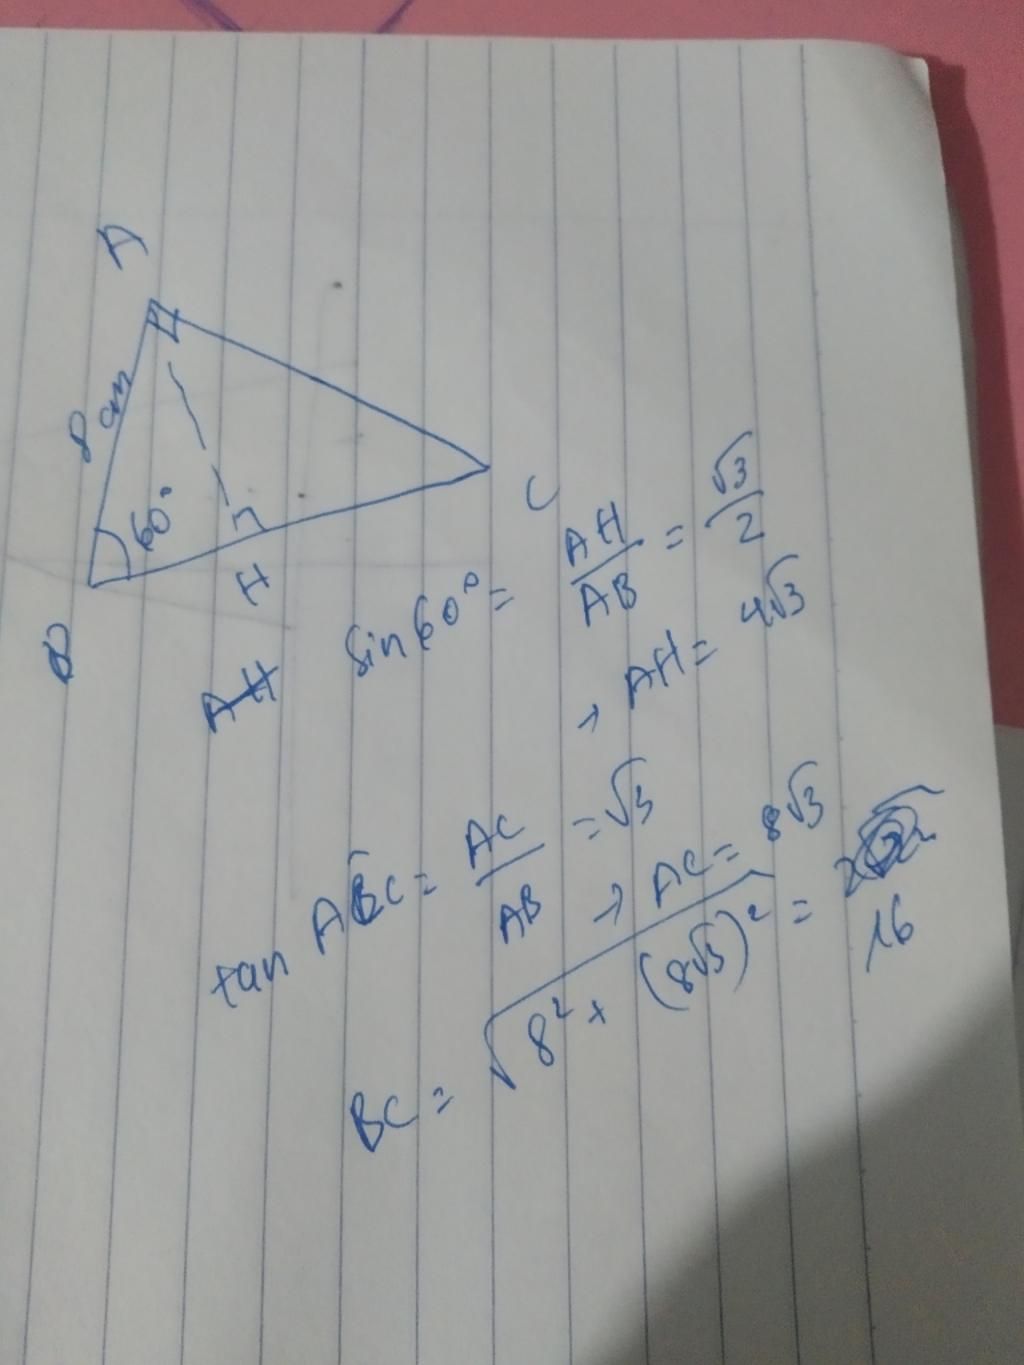 A
8 cm
60°
B
H
C
AH
sin 60° = AH/AB = √3/2
→ AH = 4√3
tan ABC = AC/AB = √3 → AC = 8√3
BC = √(8² + (8√3)²) = 16